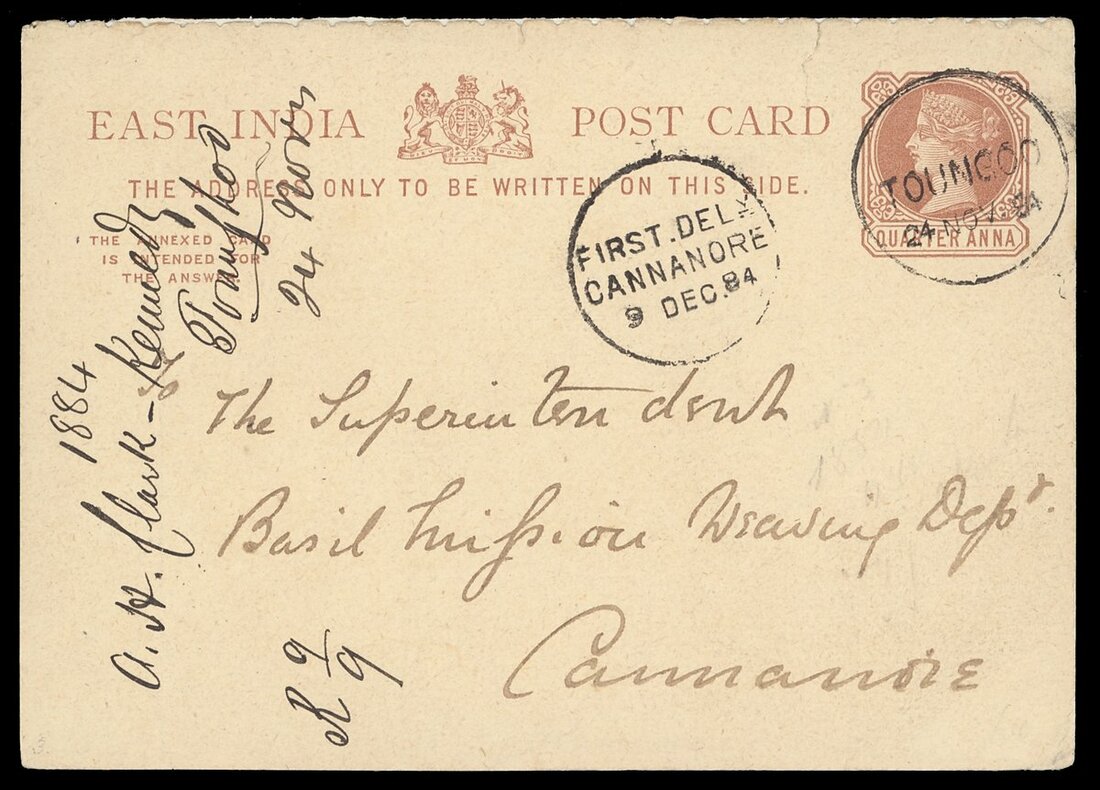 EAST INDIA POST CARD
THE ADDRESS ONLY TO BE WRITTEN ON THIS SIDE.
THE ANNEXED CARD
IS INTENDED FOR
THE ANSWER.
QUARTER ANNA
TOUNGOO
24 NOV 84
FIRST. DELY
CANNANORE
9 DEC. 84
To
The Superintendent
Basil Mission Weaving Dept.
Cannanore
1884
A. H. Clark-Kennedy
Tounghoo
24 Novr
R 9/9